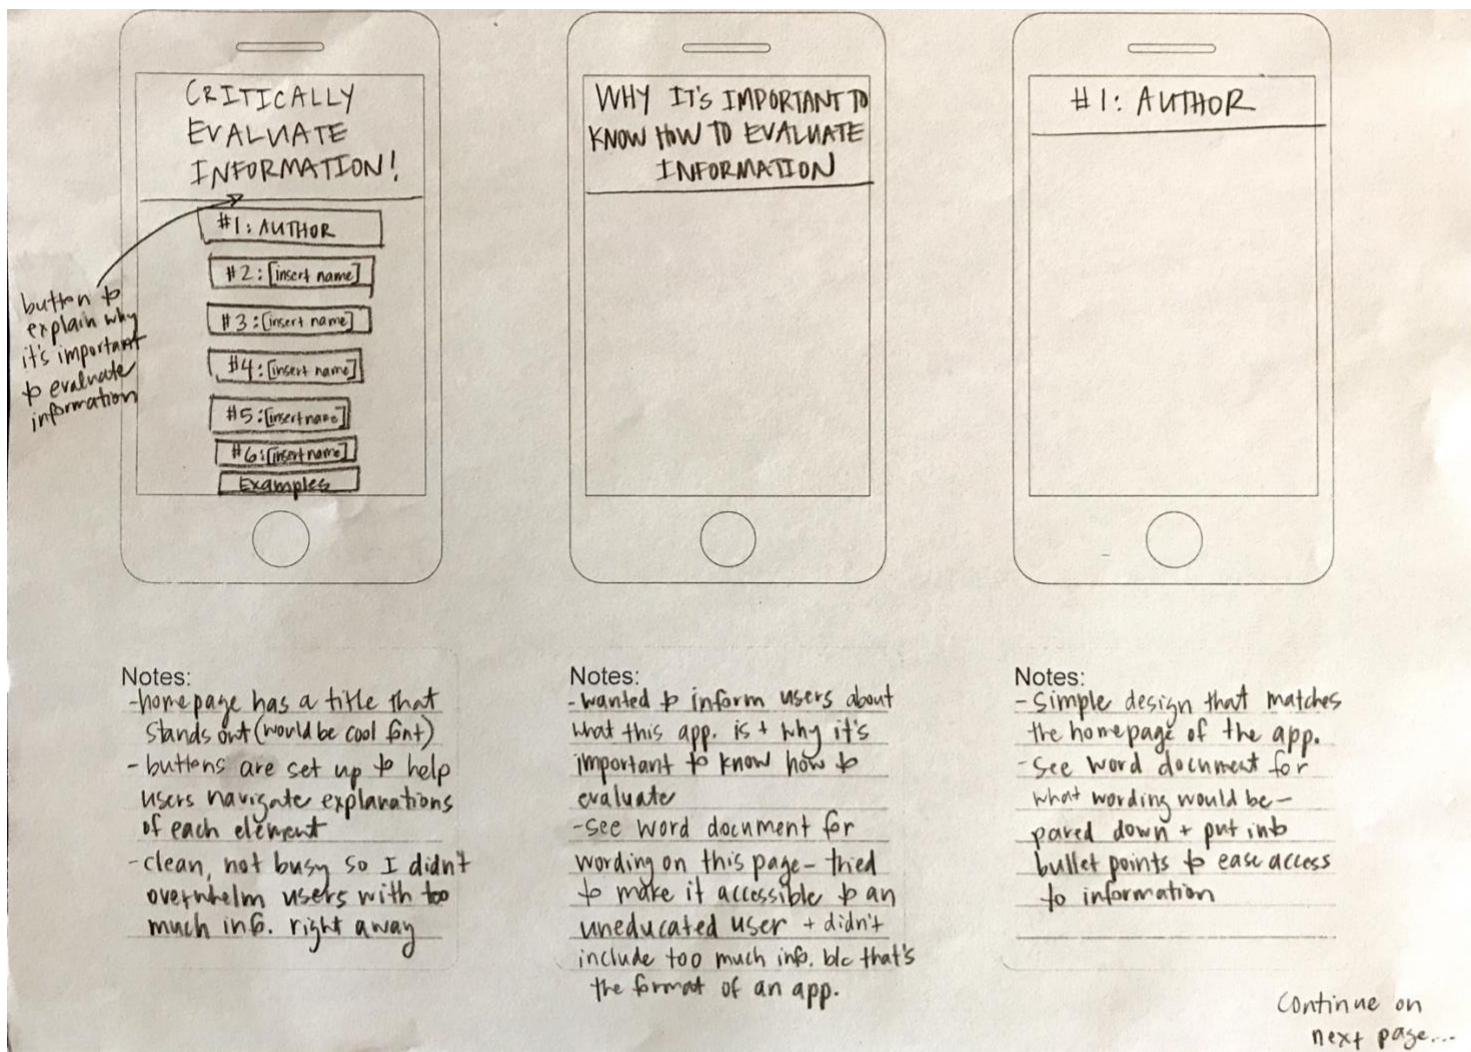 CRITICALLY
EVALUATE
INFORMATION!
#1: AUTHOR
#2: [insert name]
#3: [insert name]
#4: [insert name]
#5: [insert name]
#6: [insert name]
Examples
button to
explain why
it's important
to evaluate
information
Notes:
-homepage has a title that
stands out (would be cool font)
- buttons are set up to help
users navigate explanations
of each element
- clean, not busy so I didn't
overwhelm users with too
much info. right away
WHY IT'S IMPORTANT TO
KNOW HOW TO EVALUATE
INFORMATION
Notes:
- wanted to inform users about
what this app. is + why it's
important to know how to
evaluate
- see word document for
wording on this page- tried
to make it accessible to an
uneducated user + didn't
include too much info. b/c that's
the format of an app.
#1: AUTHOR
Notes:
- Simple design that matches
the homepage of the app.
- See word document for
what wording would be-
pared down + put into
bullet points to ease access
to information
Continue on
next page...